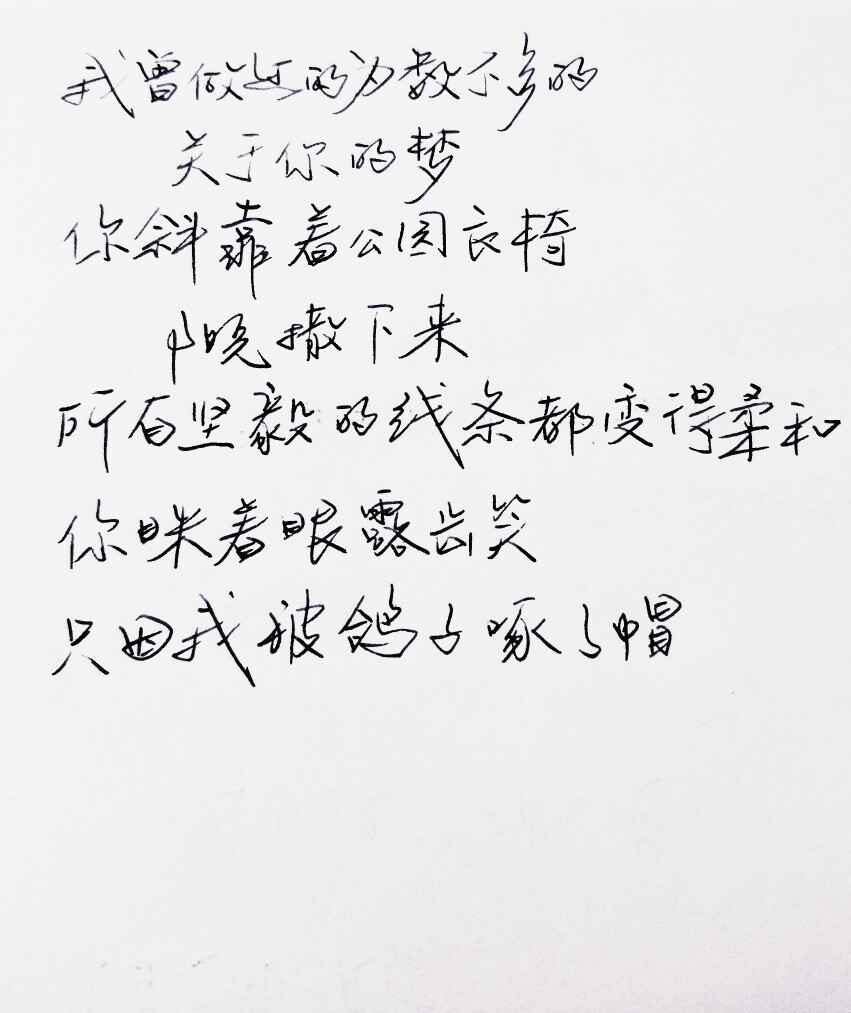 我曾做过的为数不多的
关于你的梦
你斜靠着公园长椅
晚撒下来
所有坚毅的线条都变得柔和
你眯着眼露齿笑
只因我被鸽子啄了帽